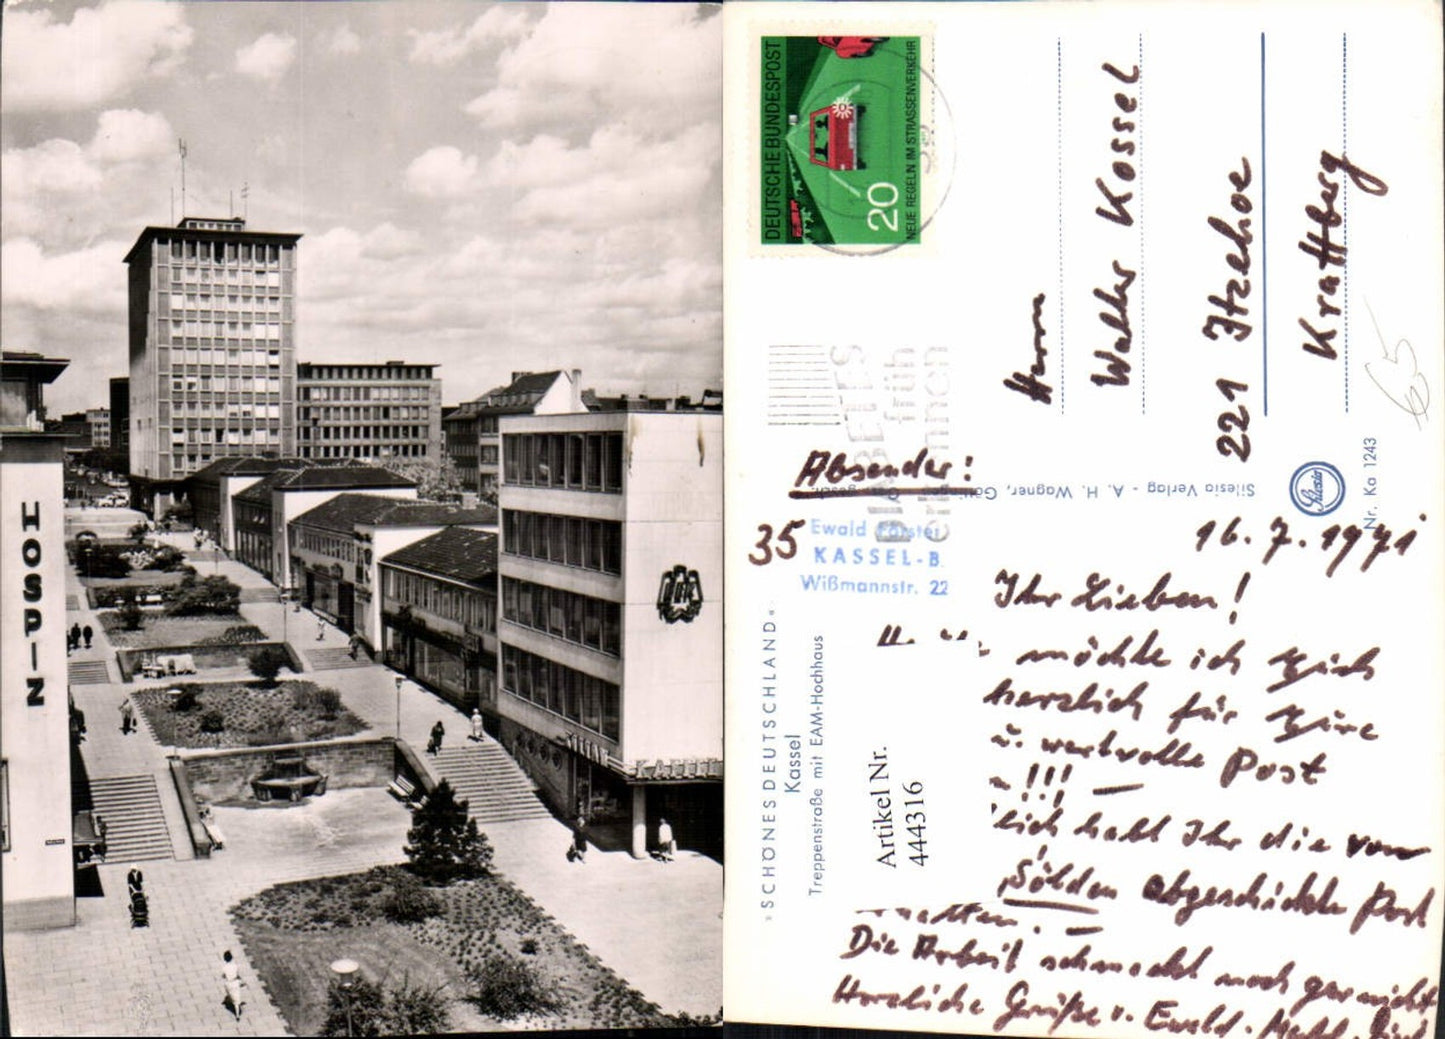 HOSPIZ
DEUTSCHE BUNDESPOST
20
NEUE REGELN IM STRASSENVERKEHR
Herrn
Walter Kossel
221 Itzehoe
Krattberg
65
Absender:
35
Ewald Förster
KASSEL-B.
Wißmannstr. 22
Silesia Verlag - A. H. Wagner, Göttingen
Silesia
Nr. Ka 1243
»SCHÖNES DEUTSCHLAND«
Kassel
Treppenstraße mit EAM-Hochhaus
Artikel Nr.
444316
16.7.1971
Ihr Lieben!
möchte ich
herzlich für
u. wertvolle Post
!!! —
habt Ihr die von
Sölden abgeschickte Post
Die Arbeit schmeckt noch gar nicht
Herzliche Grüße v. Ewald